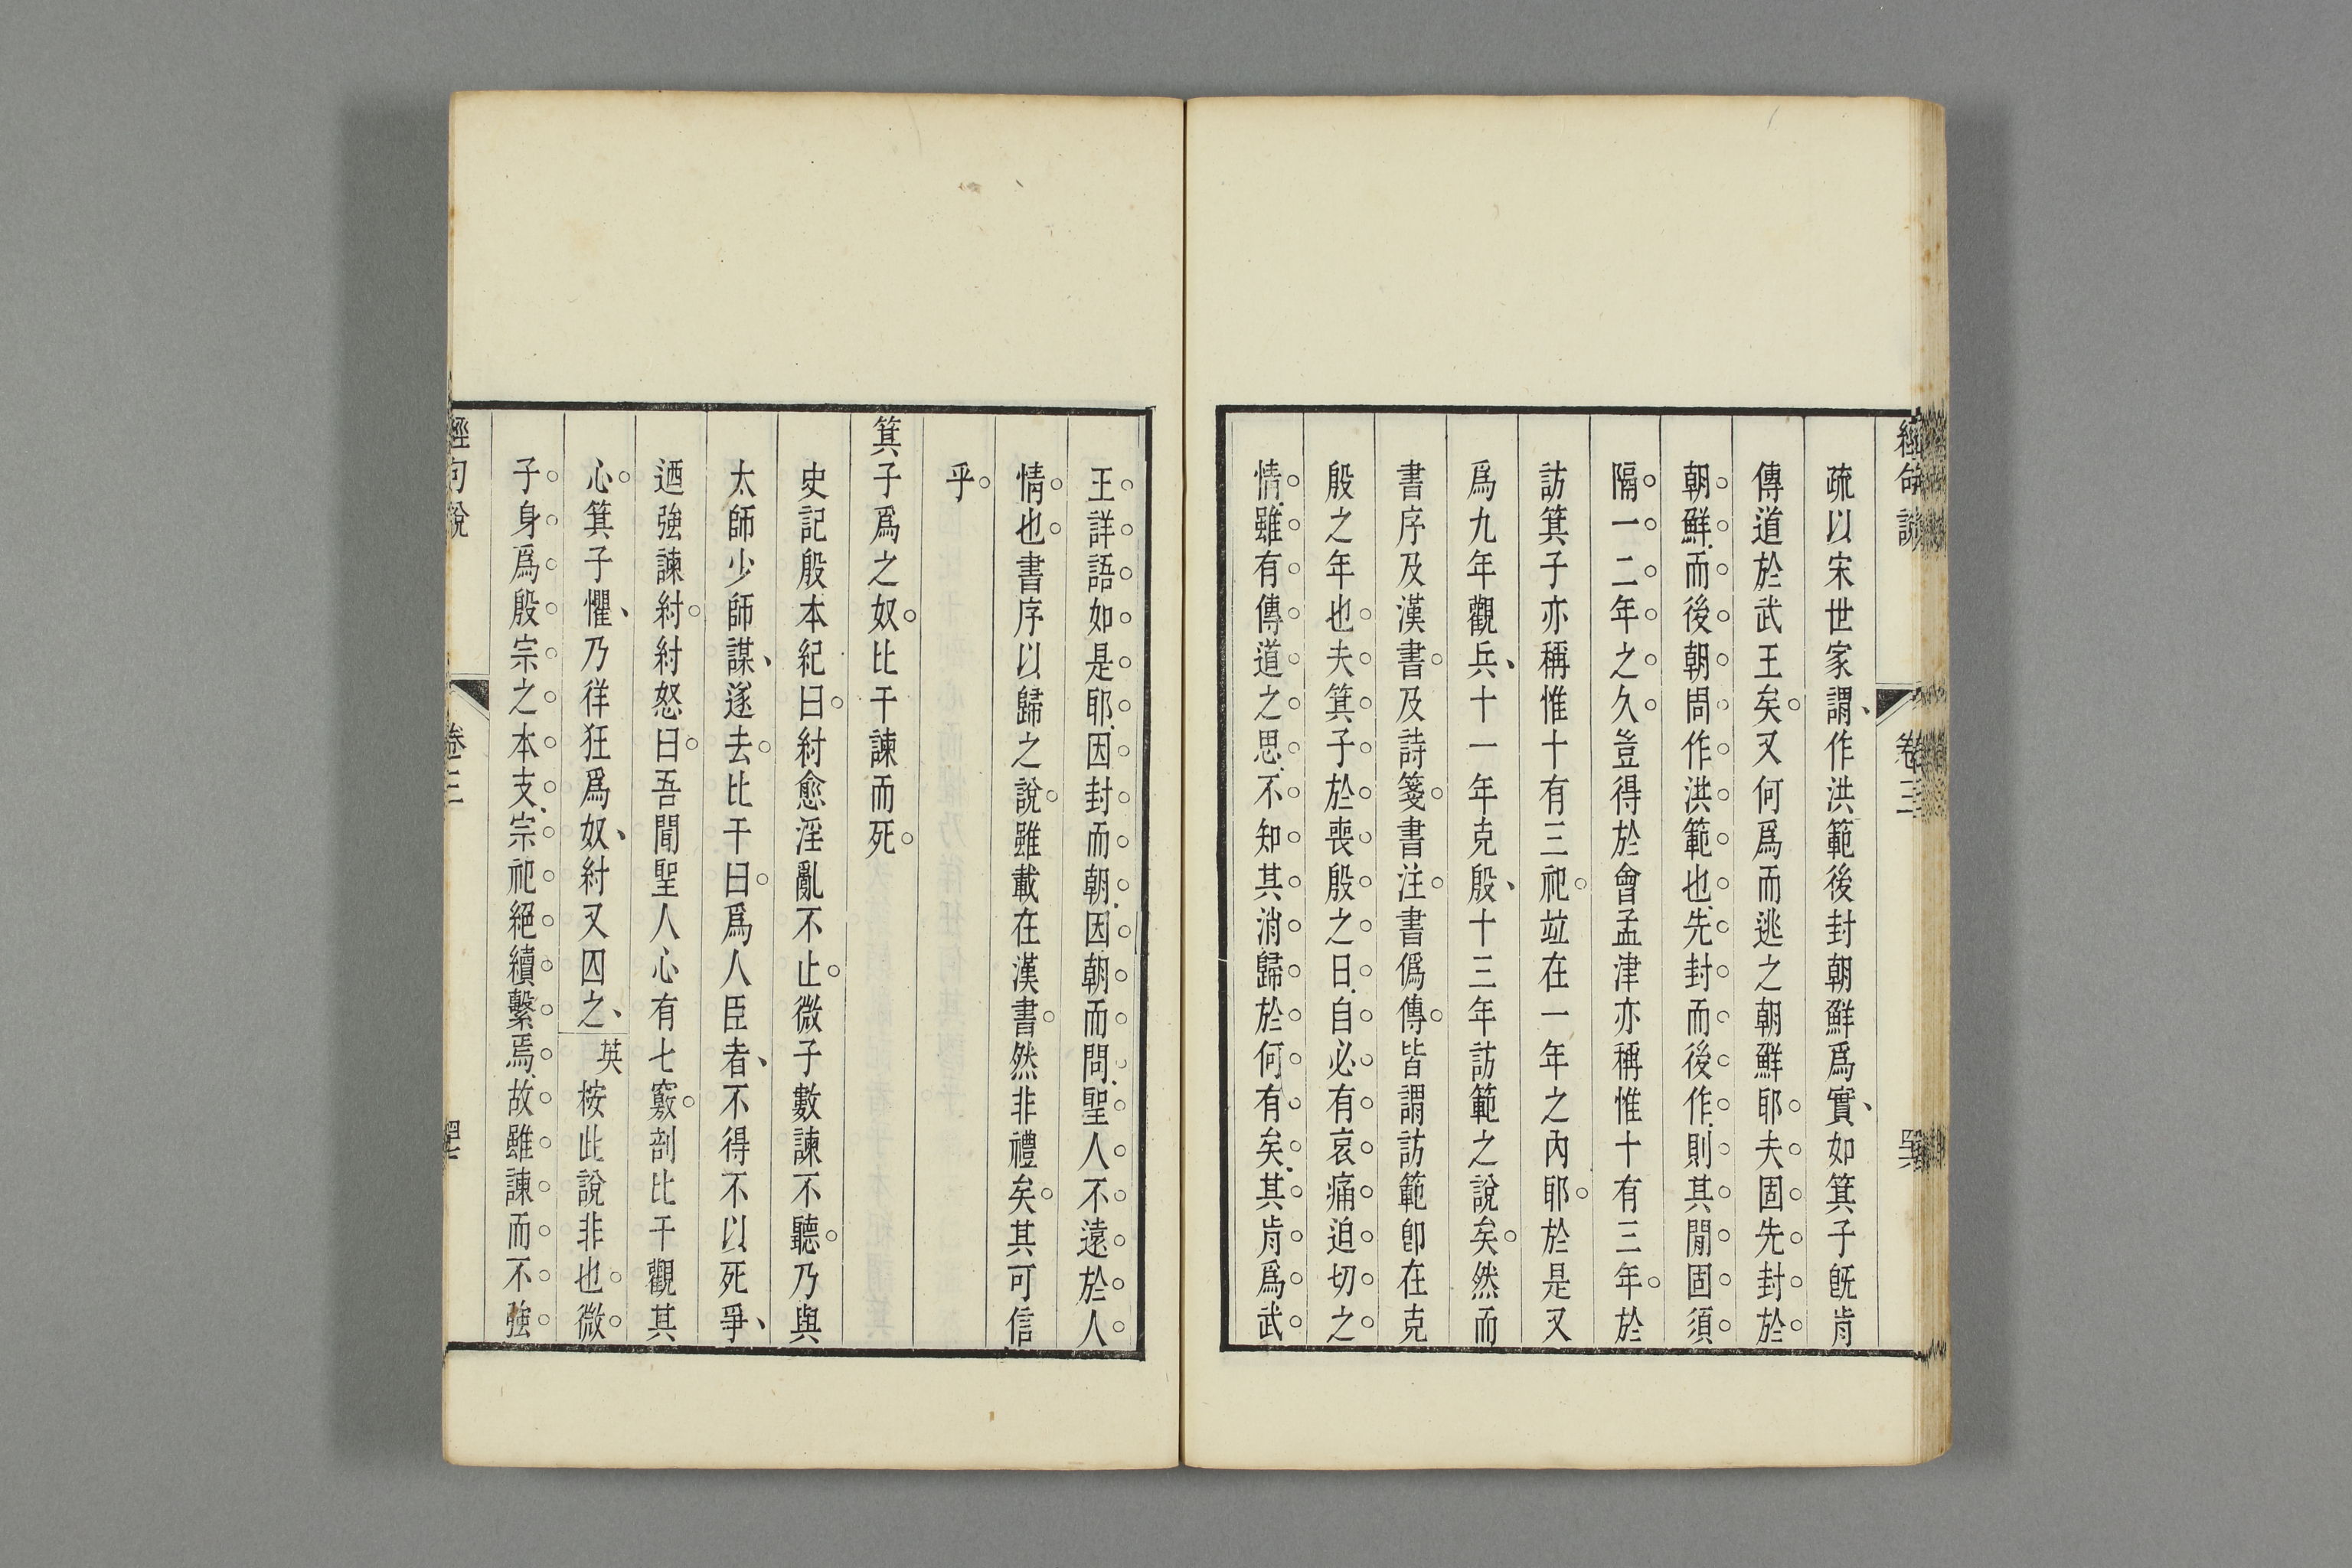 經句說 卷三
疏以宋世家謂、作洪範後封朝鮮爲實、如箕子旣肯
傳道於武王矣。又何爲而逃之朝鮮耶。夫固先封於
朝鮮而後朝周作洪範也先封而後作則其閒固須
隔一二年之久。豈得於會孟津亦稱惟十有三年。於
訪箕子亦稱惟十有三祀。竝在一年之內耶。於是又
爲九年觀兵、十一年克殷、十三年訪範之說矣。然而
書序及漢書。及詩箋。書注。書僞傳。皆謂訪範卽在克
殷之年也。夫箕子於喪殷之日自必有哀痛迫切之
情雖有傳道之思不知其消歸於何有矣其肯爲武
王詳語如是耶因封而朝因朝而問聖人不遠於人
情也。書序以歸之說。雖載在漢書。然非禮矣。其可信
乎。
箕子爲之奴。比干諫而死。
史記殷本紀曰。紂愈淫亂不止。微子數諫不聽。乃與
太師少師謀、遂去。比干曰。爲人臣者、不得不以死爭、
迺強諫紂。紂怒曰。吾聞聖人心有七竅。剖比干觀其
心。箕子懼、乃徉狂爲奴、紂又囚之、英桉此說非也。微
子身爲殷宗之本支宗祀絕續繫焉故雖諫而不強
經句說 卷三